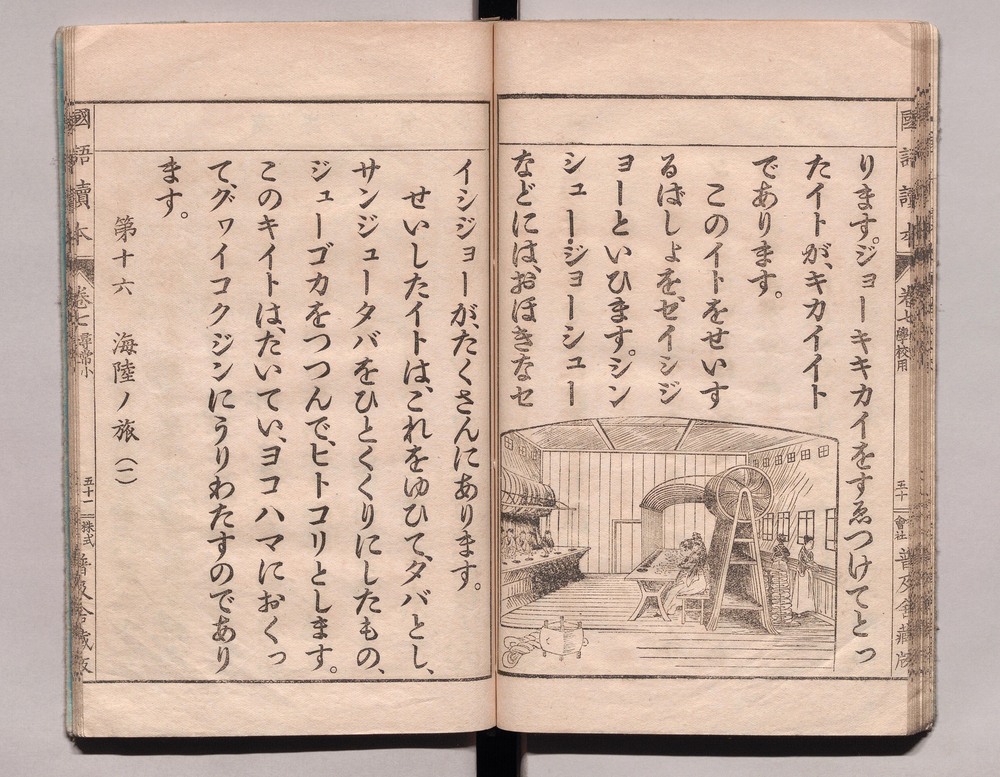 國語讀本 卷七 尋常小
學校用 五十 株式
會社 普及舍藏版
ります。ジョーキキカイをすゑつけてとっ
たイトが、キカイイト
であります。
このイトをせいす
るばしょを、セイシジ
ョーといひます。シン
シュー・ジョーシュー
などには、おほきなセ
イシジョーが、たくさんにあります。
せいしたイトは、これをゆひて、タバとし、
サンジュータバをひとくくりにしたもの、
ジューゴカをつつんで、ヒトコリとします。
このキイトは、たいてい、ヨコハマにおくっ
て、グヮイコクジンにうりわたすのであり
ます。
第十六 海陸ノ旅(一)
國語讀本 卷七 尋常小 五十一 株式 普及舍藏版